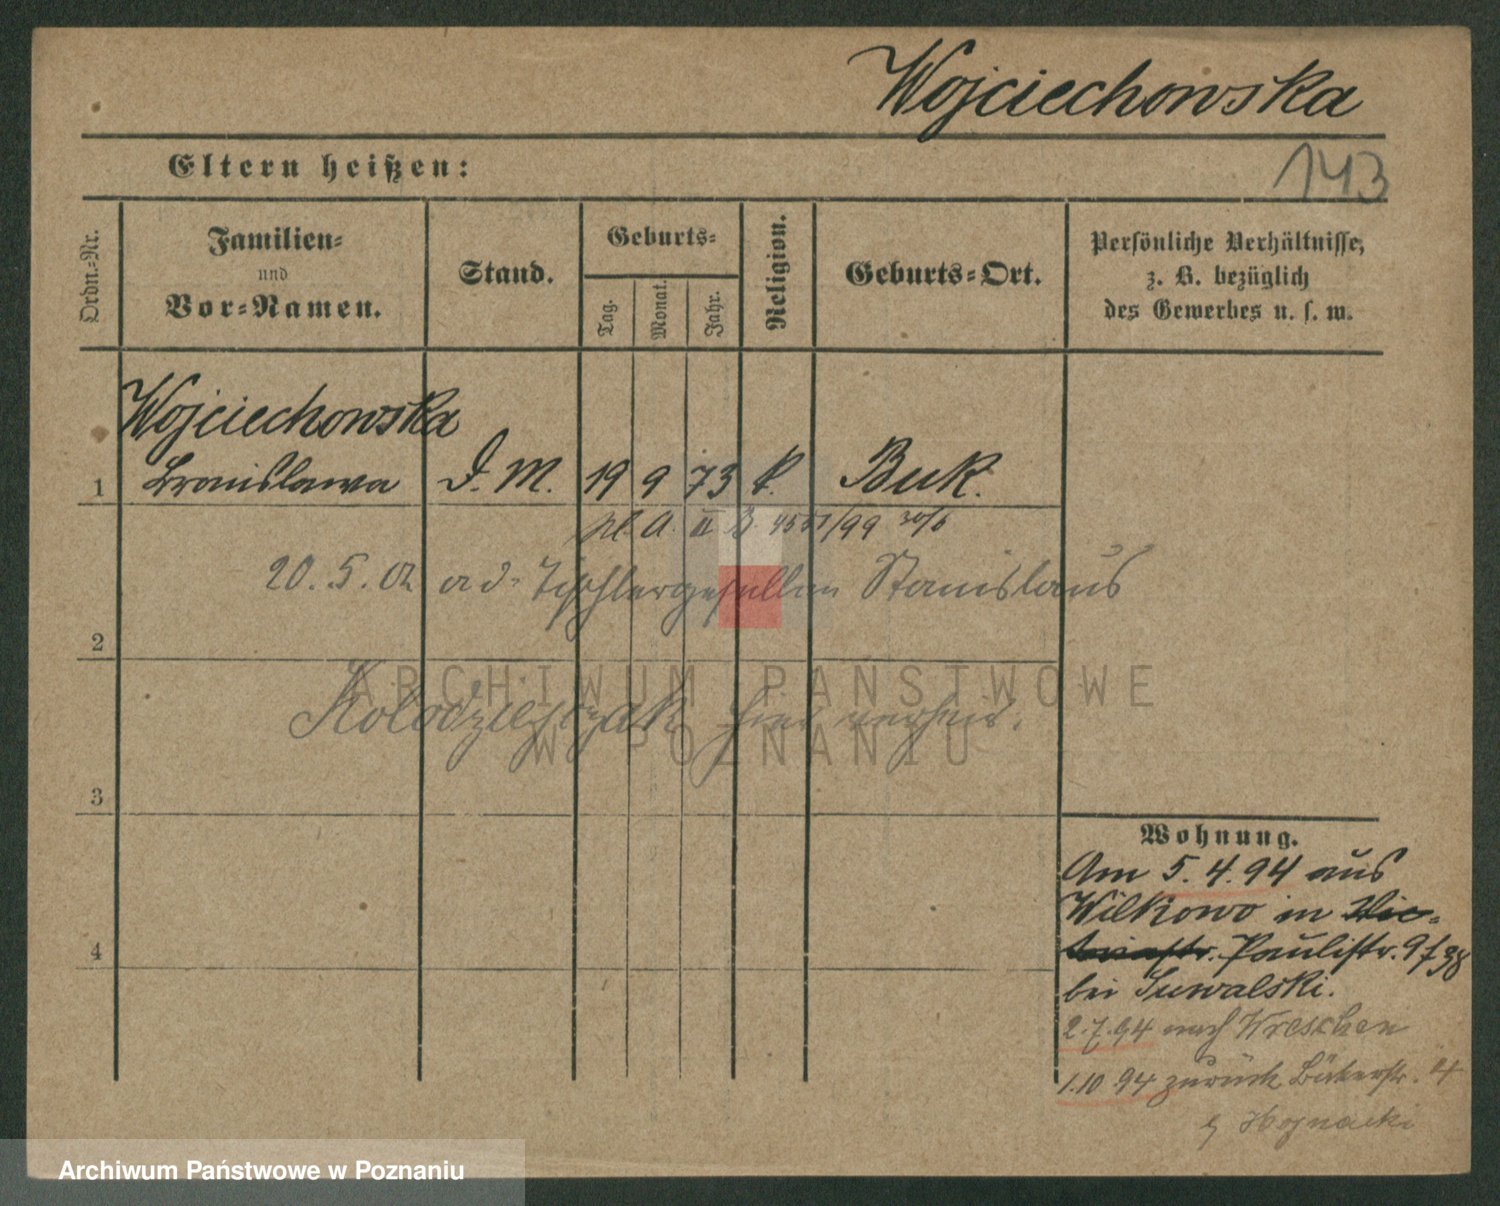 Wojciechowska
143
Eltern heißen:
Ordn.-Nr.
Familien-
und
Vor-Namen.
Stand.
Geburts-
Tag.
Monat.
Jahr.
Religion.
Geburts-Ort.
Persönliche Verhältnisse,
z. B. bezüglich
des Gewerbes u. s. w.
Wojciechowska
1 Bronislawa D. M. 19 9 73 k. Buk.
A. II B. /99 30/6
20. 5. 02 a d. Tischlergesellen Stanislaus
2
Kolodziejczak hier verheir.
3
4
Wohnung.
Am 5. 4. 94 aus
Wilkowo in Vic-
toriastr. Paulistr. 9 f 38
bei Suwalski.
2.7.94 nach Wreschen
1.10 94 zurück Bäckerstr. 4
b Hojnacki
ARCHIWUM PAŃSTWOWE
W POZNANIU
Archiwum Państwowe w Poznaniu